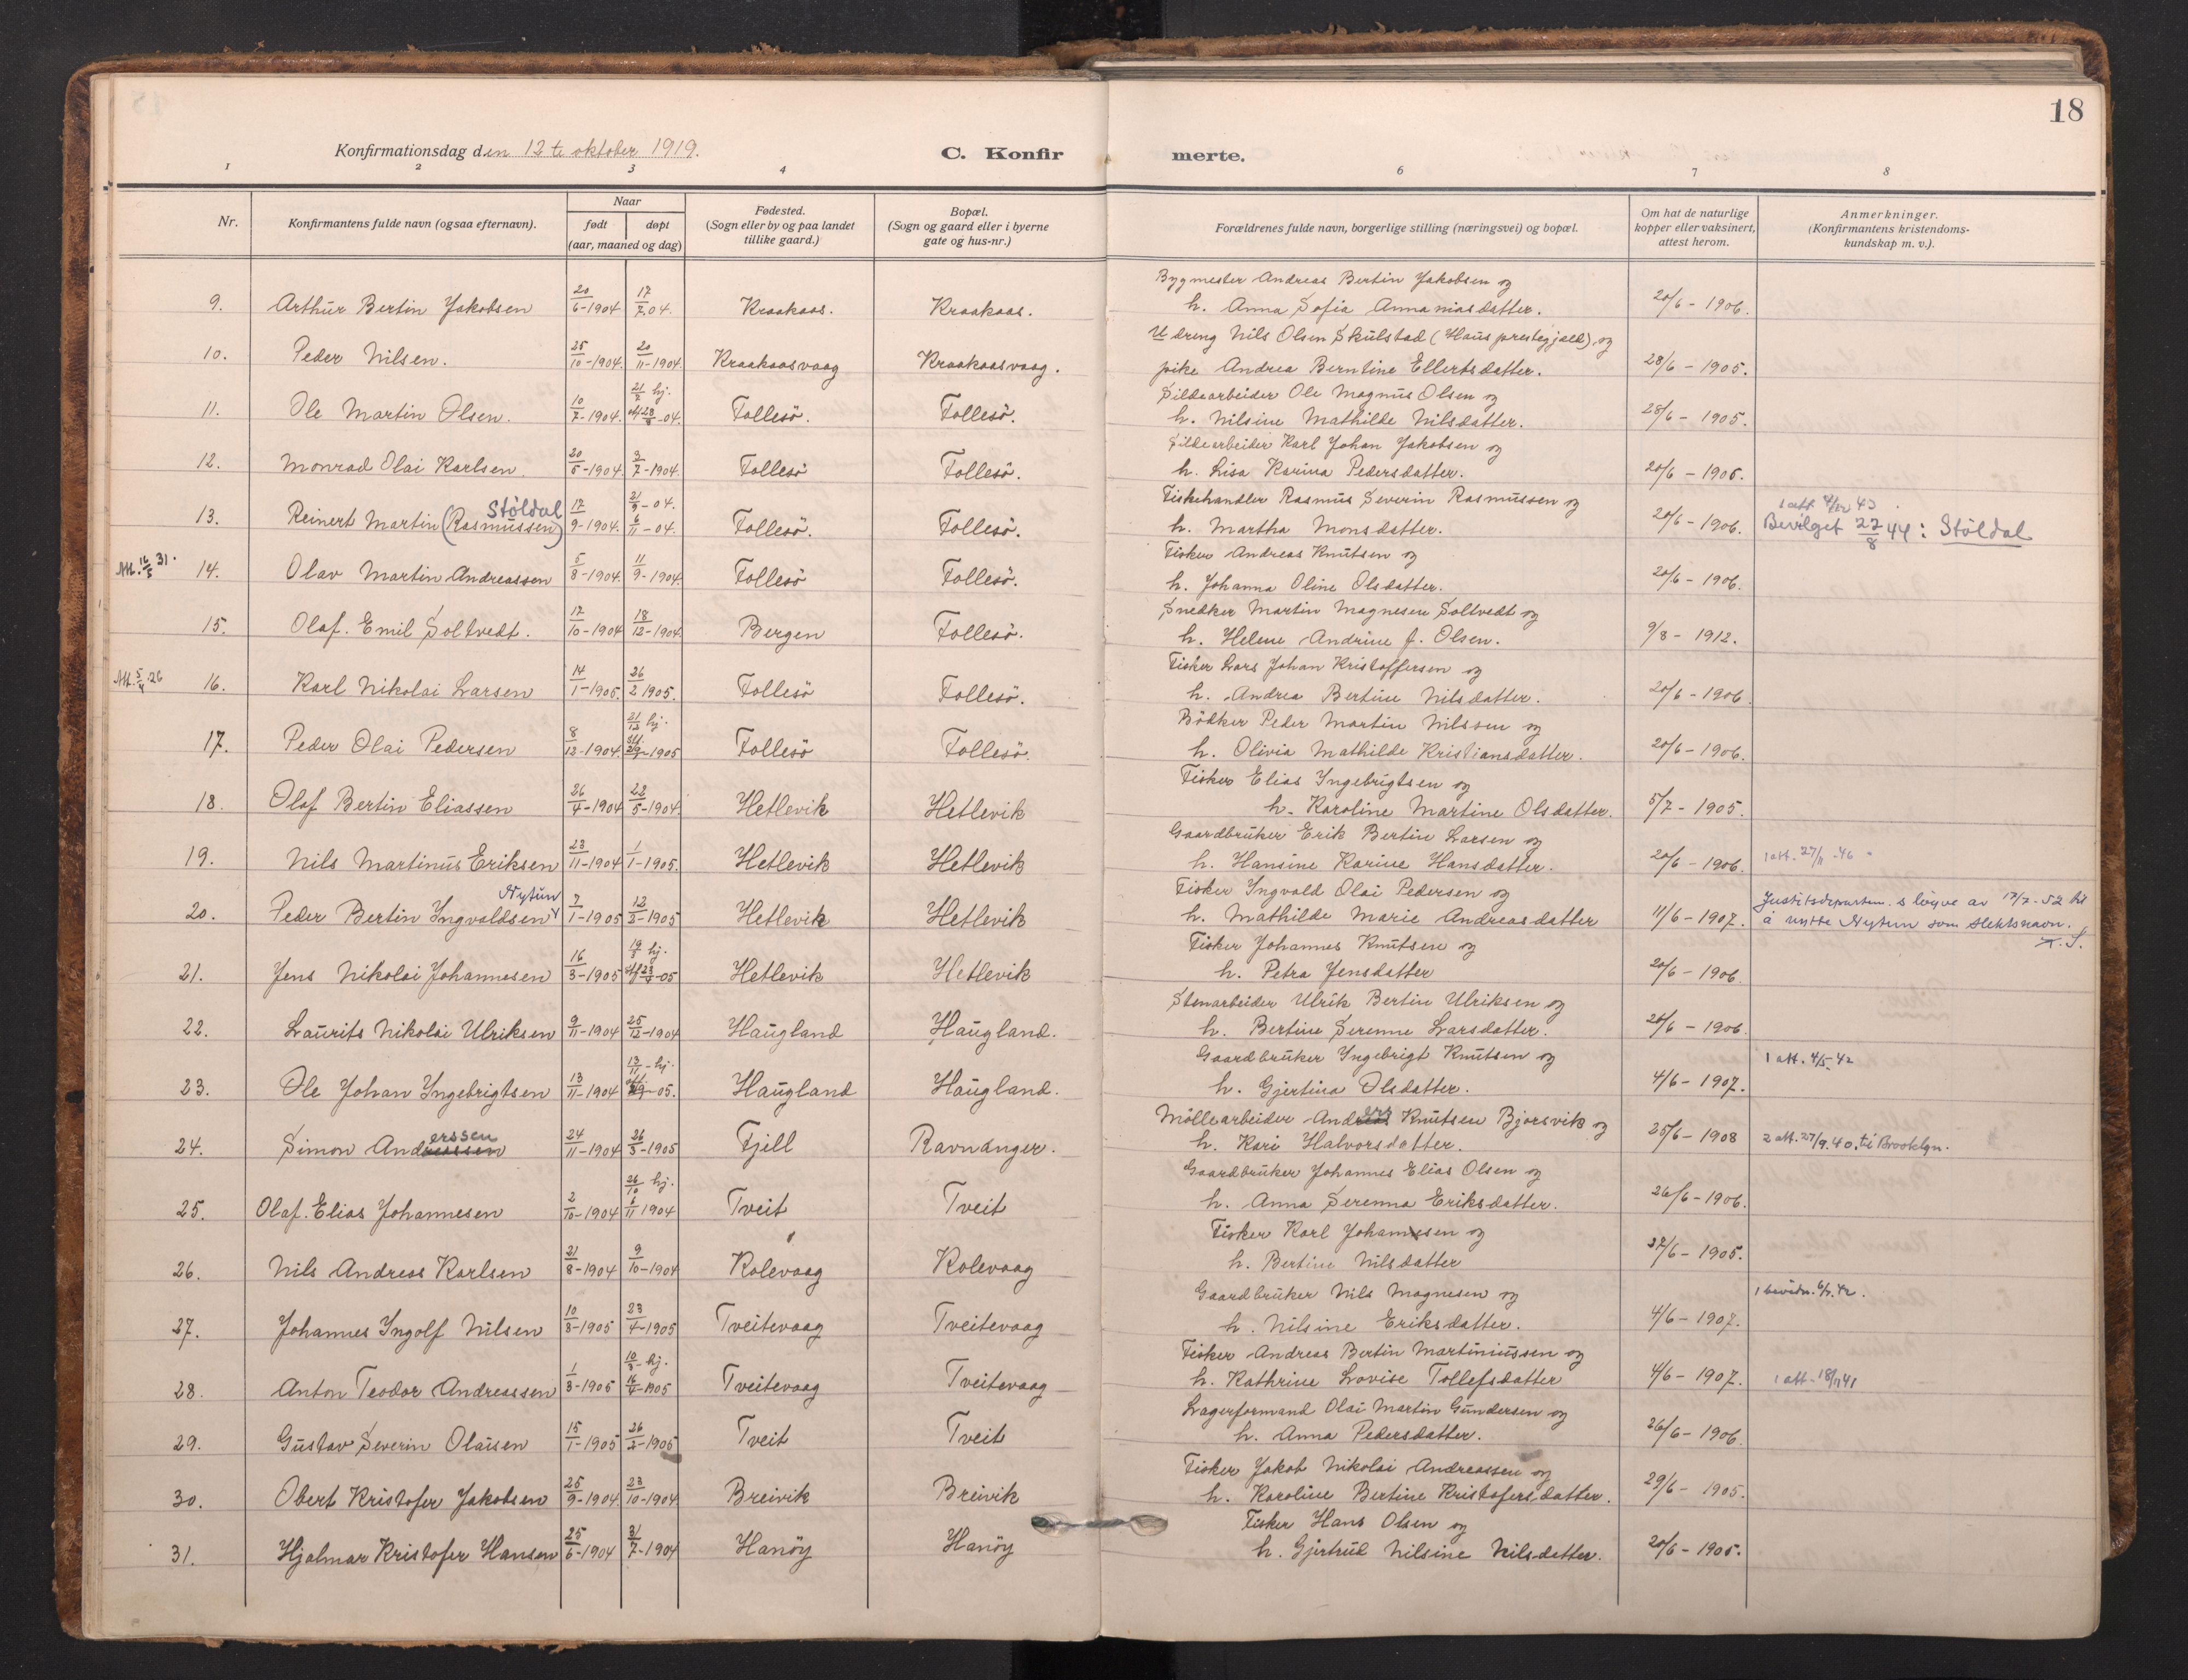 18
Konfirmationsdag den 12te oktober 1919.
C. Konfirmerte.
1 2 3 4 6 7 8
Nr.
Konfirmantens fulde navn (ogsaa efternavn).
Naar
født
døpt
(aar, maaned og dag)
Fødested.
(Sogn eller by og paa landet
tillike gaard.)
Bopæl.
(Sogn og gaard eller i byerne
gate og hus-nr.)
Forældrenes fulde navn, borgerlige stilling (næringsvei) og bopæl.
Om hat de naturlige
kopper eller vaksinert,
attest herom.
Anmerkninger.
(Konfirmantens kristendoms-
kundskap m. v.).
Bygmester Andreas Bertin Jakobsen og
9. Arthur Bertin Jakobsen 20/6-1904 17/7.04. Kraakaas. Kraakaas. h. Anna Sofia Annaniasdatter. 20/6 - 1906.
Udreng Nils Olsen Skulstad (Haus prestegjæld) og
10. Peder Nilsen. 25/10-1904. 20/11-1904. Kraakaasvaag Kraakaasvaag. pike Andrea Berntine Ellertsdatter. 28/6 - 1905.
21/7 hj. Sildearbeider Ole Magnus Olsen og
11. Ole Martin Olsen. 10/7-1904. 28/8-04. Follesö. Follesö. h. Nilsine Mathilde Nilsdatter. 28/6 - 1905.
Sildearbeider Karl Johan Jakobsen og
12. Monrad Olai Karlsen. 20/5-1904 3/7-1904 Follesö Follesö. h. Lisa Karina Pedersdatter. 20/6 - 1906.
Stöldal 21/9-04. Fiskehandler Rasmus Severin Rasmussen og 1 att 4/12 43.
13. Reinert Martin (Rasmussen) 17/9-1904. 6/11-04. Follesö. Follesö. h. Martha Monsdatter. 20/6 - 1906. Bevilget 22/8 44: Stöldal
Fisker Andreas Knutsen og
Att. 16/5 31. 14. Olav Martin Andreassen 5/8-1904. 11/9-1904. Follesö Follesö. h. Johanna Oline Olsdatter. 20/6 - 1906.
Snedker Martin Magnesen Soltvedt og
15. Olaf. Emil Soltvedt. 17/10-1904 18/12-1904. Bergen Follesö. h. Helene Andrine f. Olsen. 9/8 - 1912.
Fisker Lars Johan Kristoffersen og
Att. 5/4.26 16. Karl Nikolai Larsen 14/1-1905. 26/2 1905. Follesö Follesö. h. Andrea Bertine Nilsdatter. 20/6 - 1906.
21/12 hj. Bödker Peder Martin Nilssen og
17. Peder Olai Pedersen 8/12-1904. 1905 Follesö Follesö. h. Olivia Mathilde Kristiansdatter. 20/6 - 1906.
Fisker Elias Ingebrigtsen og
18. Olaf Bertin Eliassen 26/4-1904 22/5-1904. Hetlevik Hetlevik h. Karoline Martine Olsdatter. 5/7 - 1905.
Gaardbruker Erik Bertin Larsen og
19. Nils Martinus Eriksen 23/11-1904 1/1-1905. Hetlevik Hetlevik h. Hansine Karine Hansdatter. 20/6 - 1906. 1 att. 27/11 -46
Nytun Fisker Ingvald Olai Pedersen og Justitsdepartem.s löyve av 17/7-52 til
20. Peder Bertin Ingvaldsen 7/1-1905 12/3-1905 Hetlevik Hetlevik h. Mathilde Marie Andreasdatter 11/6 - 1907. å nytte Nytun som slektsnavn.
19/3 hj. Fisker Johannes Knutsen og
21. Jens Nikolai Johannesen 16/3-1905 05 Hetlevik Hetlevik h. Petra Jensdatter 20/6 - 1906.
Stenarbeider Ulrik Bertin Ulriksen og
22. Laurits Nikolai Ulriksen 9/11-1904 25/12-1904 Haugland Haugland. h. Bertine Serenne Larsdatter. 20/6 - 1906.
13/11-hj. Gaardbruker Ingebrigt Knutsen og 1 att. 4/5-42
23. Ole Johan Ingebrigtsen 13/11-1904 05. Haugland Haugland. h. Gjertina Olsdatter. 4/6 - 1907.
erssen Möllearbeider Anders Knutsen Bjorsvik og
24. Simon Andreassen 24/11-1904 26/3-1905 Fjell Ravnanger. h. Kari Halvorsdatter. 25/6 - 1908 2 att. 27/9.40. til Brooklyn.
26/10 hj. Gaardbruker Johannes Elias Olsen og
25. Olaf. Elias Johannesen 2/10-1904 6/11 1904 Tveit Tveit h. Anna Serenna Eriksdatter. 26/6 - 1906.
Fisker Karl Johannesen og
26. Nils Andreas Karlsen 21/8-1904 9/10-1904 Kolevaag Kolevaag h. Bertine Nilsdatter 27/6 - 1905.
Gaardbruker Nils Magnesen og
27. Johannes Ingolf Nilsen 10/3-1905 23/4-1905 Tveitevaag Tveitevaag h. Nilsine Eriksdatter. 4/6 - 1907.
10/3-hj. Fisker Andreas Bertin Martiniussen og
28. Anton Teodor Andreassen 1/3-1905 16/4-1905 Tveitevaag Tveitevaag h. Kathrine Lovise Tollefsdatter 4/6 - 1907. 1 att-18/11 41
Lagerformand Olai Martin Gundersen og
29. Gustav Severin Olaisen 15/1-1905 26/2-1905 Tveit Tveit h. Anna Pedersdatter. 26/6 - 1906.
Fisker Jakob Nikolai Andreassen og
30. Obert Kristofer Jakobsen 25/9-1904. 23/10-1904 Breivik Breivik h. Karoline Bertine Kristofersdatter. 29/6 - 1905.
Fisker Hans Olsen og
31. Hjalmar Kristofer Hansen 25/6-1904 31/7-1904 Hanöy Hanöy h. Gjertrud Nilsine Nilsdatter. 20/6 - 1905.